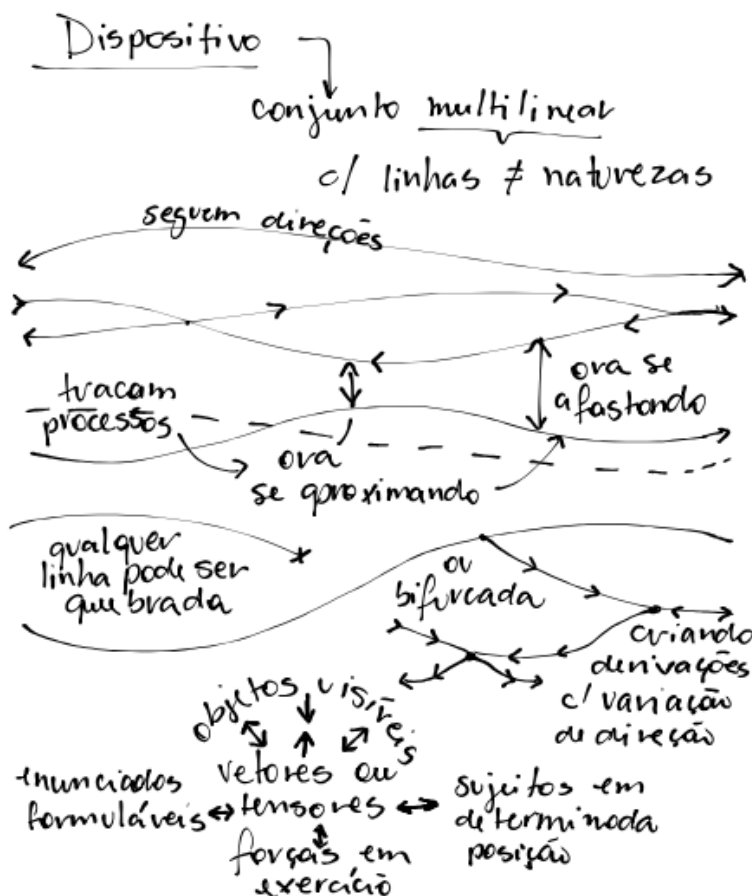 Dispositivo
conjunto multilinear
c/ linhas ≠ naturezas
seguem direções
tracam
processos
ora
se aproximando
ora se
afastando
qualquer
linha pode ser
quebrada
ou
bifurcada
criando
derivações
c/ variação
de direção
objetos visíveis
vetores ou
tensores
enunciados
formuláveis
sujeitos em
determinada
posição
forças em
exercício